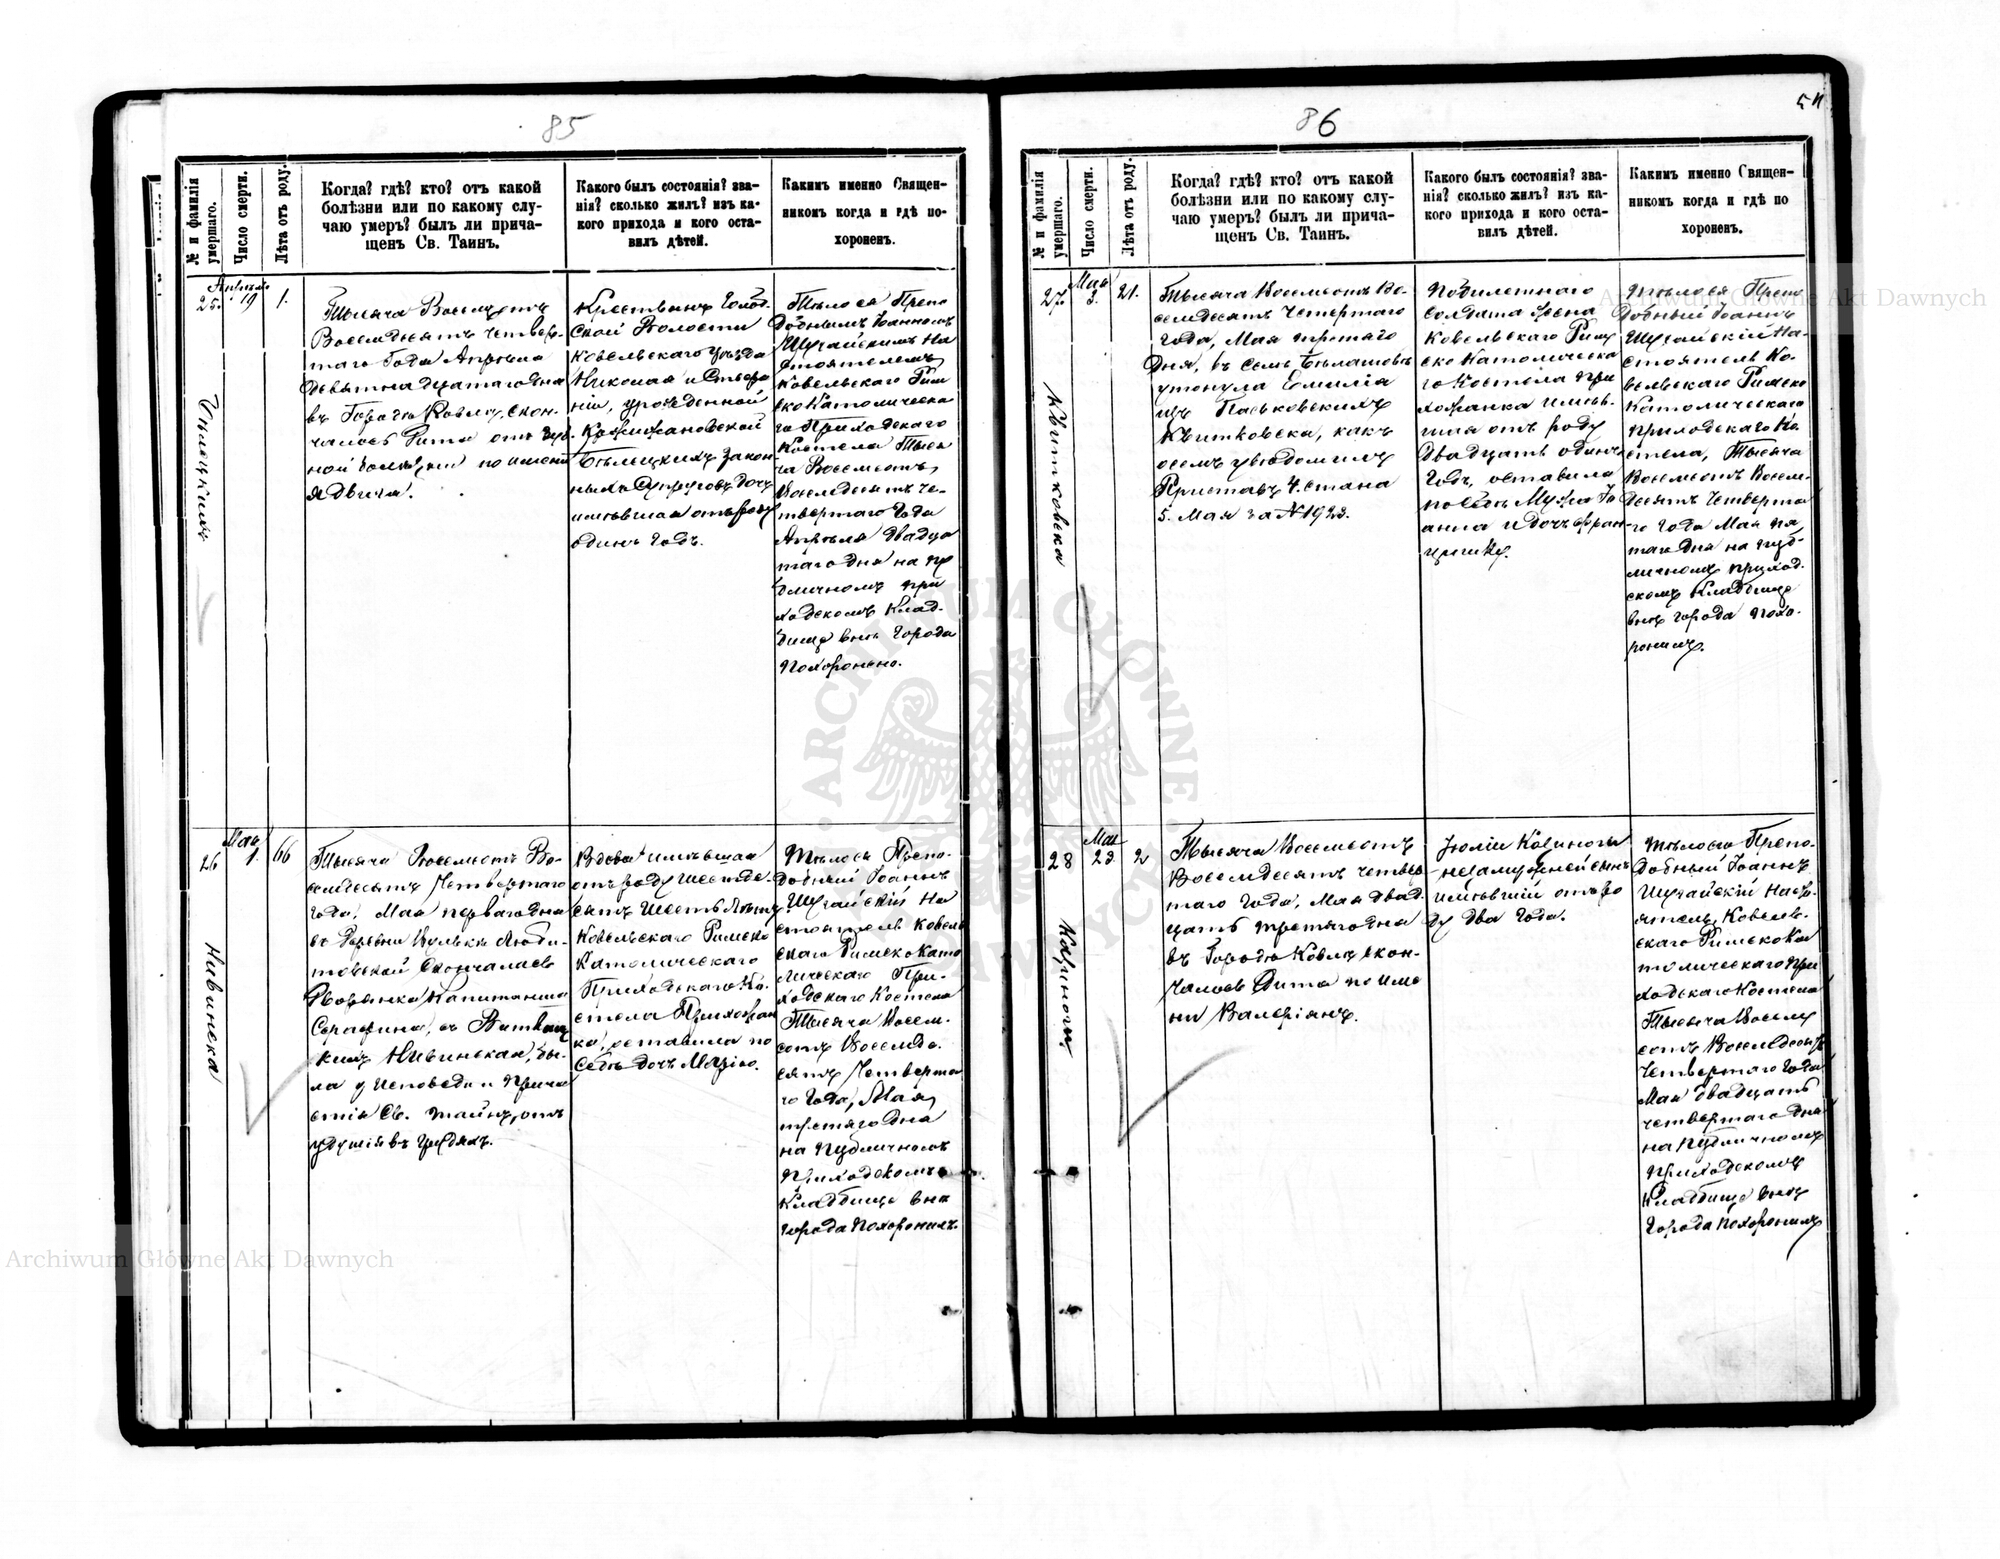 85
№ и фамилія умершаго.
Число смерти.
Лѣта отъ роду.
Когда? гдѣ? кто? отъ какой
болѣзни или по какому слу-
чаю умеръ? былъ ли прича-
щенъ Св. Таинъ.
Какого былъ состоянія? зва-
нія? сколько жилъ? изъ ка-
кого прихода и кого оста-
вилъ дѣтей.
Какимъ именно Священ-
никомъ когда и гдѣ по-
хороненъ.
25.
Апрѣля
19
1.
Тысяча Восемсотъ
Восемдесятъ Четвер-
таго Года Апрѣля
Девятнадцатаго дня
въ Городѣ Ковлѣ скон-
чалось Дитя отъ
по имени
Ядвига.
Крестьянъ
ской Волости
Ковельскаго уѣзда
Николая и Стефа
ніи, урожденной
Кожижановской
Бѣлецкихъ Закон-
ныхъ Супруговъ дочь
имѣвшая отъ роду
одинъ годъ.
Тѣло ея Препо
добнымъ Іоанномъ
Шугайскимъ На
стоятелемъ
Ковельскаго Рим
ско Католическа
го Приходскаго
Костела Тыся
ча Восемсотъ
Восемдесятъ Че-
твертаго Года
Апрѣля двадца
таго дня на пу
бличномъ при
ходскомъ Клад-
бище внѣ Города
похоронено.
26
Мая
1.
66
Нивинска
Тысяча Восемсотъ Во-
семдесятъ Четвертаго
Года, Мая перваго дня
въ Деревни Вулькѣ Люби-
товской скончалась
Дворянка Капитанша
Серафина, съ
Нивинская, бы-
ла у Исповеди и Прича
стія Св. Тайнъ, отъ
удушія въ грудяхъ.
Вдова имѣвшая
отъ роду шестьде-
сятъ шесть лѣтъ
Ковельскаго Римско
Католическаго
Приходскаго Ко-
стела Прихожан
ка, оставила по
себѣ дочь Марію.
Тѣло ея Препо-
добный Іоаннъ
Шугайскій На
стоятель Ковель
скаго Римско Като
лическаго При-
ходскаго Костела
Тысяча Восем-
сотъ Восемде-
сятъ Четверта
го Года, Мая
третяго дня
на Публичномъ
Приходскомъ
Кладбище внѣ
Города Похоронилъ
86
№ и фамилія умершаго.
Число смерти.
Лѣта отъ роду.
Когда? гдѣ? кто? отъ какой
болѣзни или по какому слу-
чаю умеръ? былъ ли прича-
щенъ Св. Таинъ.
Какого былъ состоянія? зва-
нія? сколько жилъ? изъ ка-
кого прихода и кого оста-
вилъ дѣтей.
Какимъ именно Священ-
никомъ когда и гдѣ по
хороненъ.
27
Мая
3.
21.
Квитковска
Тысяча Восемсотъ Во-
семдесятъ Четертаго
года, Мая третяго
дня, въ селѣ Бѣлашовѣ
утонула Емилія
изъ Паськовскихъ
Квитковска, какъ
осемъ увѣдомилъ
Приставъ 4. стана
5. Мая за №1923.
Побилетнаго
солдата жена
Ковельскаго Рим
ско Католическа
го Костела при
хожанка имѣв-
шая отъ роду
Двадцать одинъ
Годъ, оставила
по себѣ Мужа Іо
анна и дочь Фран-
цишку.
Тѣло ея Препо
добный Іоаннъ
Шугайскій На-
стоятель Ко-
вельскаго Римско
Католическаго
приходскаго Ко
стела, Тысяча
Восемсотъ Восем-
десятъ Четверта
го Года Мая пя
таго дня на пуб-
личномъ приход-
скомъ Кладбище
внѣ города похо-
ронилъ.
28
Мая
23.
2
Тысяча Восемсотъ
Восемдесятъ четвер
таго Года, Мая двад
цать третяго дня
въ Городѣ Ковлѣ скон-
чалось Дитя по име
ни Валеріянъ.
Юліи
незамужней сынъ
имѣвшій отъ ро
ду два года.
Тѣло его Препо-
добный Іоаннъ
Шугайскій Наст-
ятель, Ковель-
скаго Римско Ка
толическаго при
ходскаго Костела
Тысяча Восем
сотъ Восемдесятъ
Четвертаго Года
Мая двадцать
четвертаго дня
на Публичномъ
Приходскомъ
Кладбище внѣ
Города Похоронилъ
Archiwum Główne Akt Dawnych
Archiwum Główne Akt Dawnych